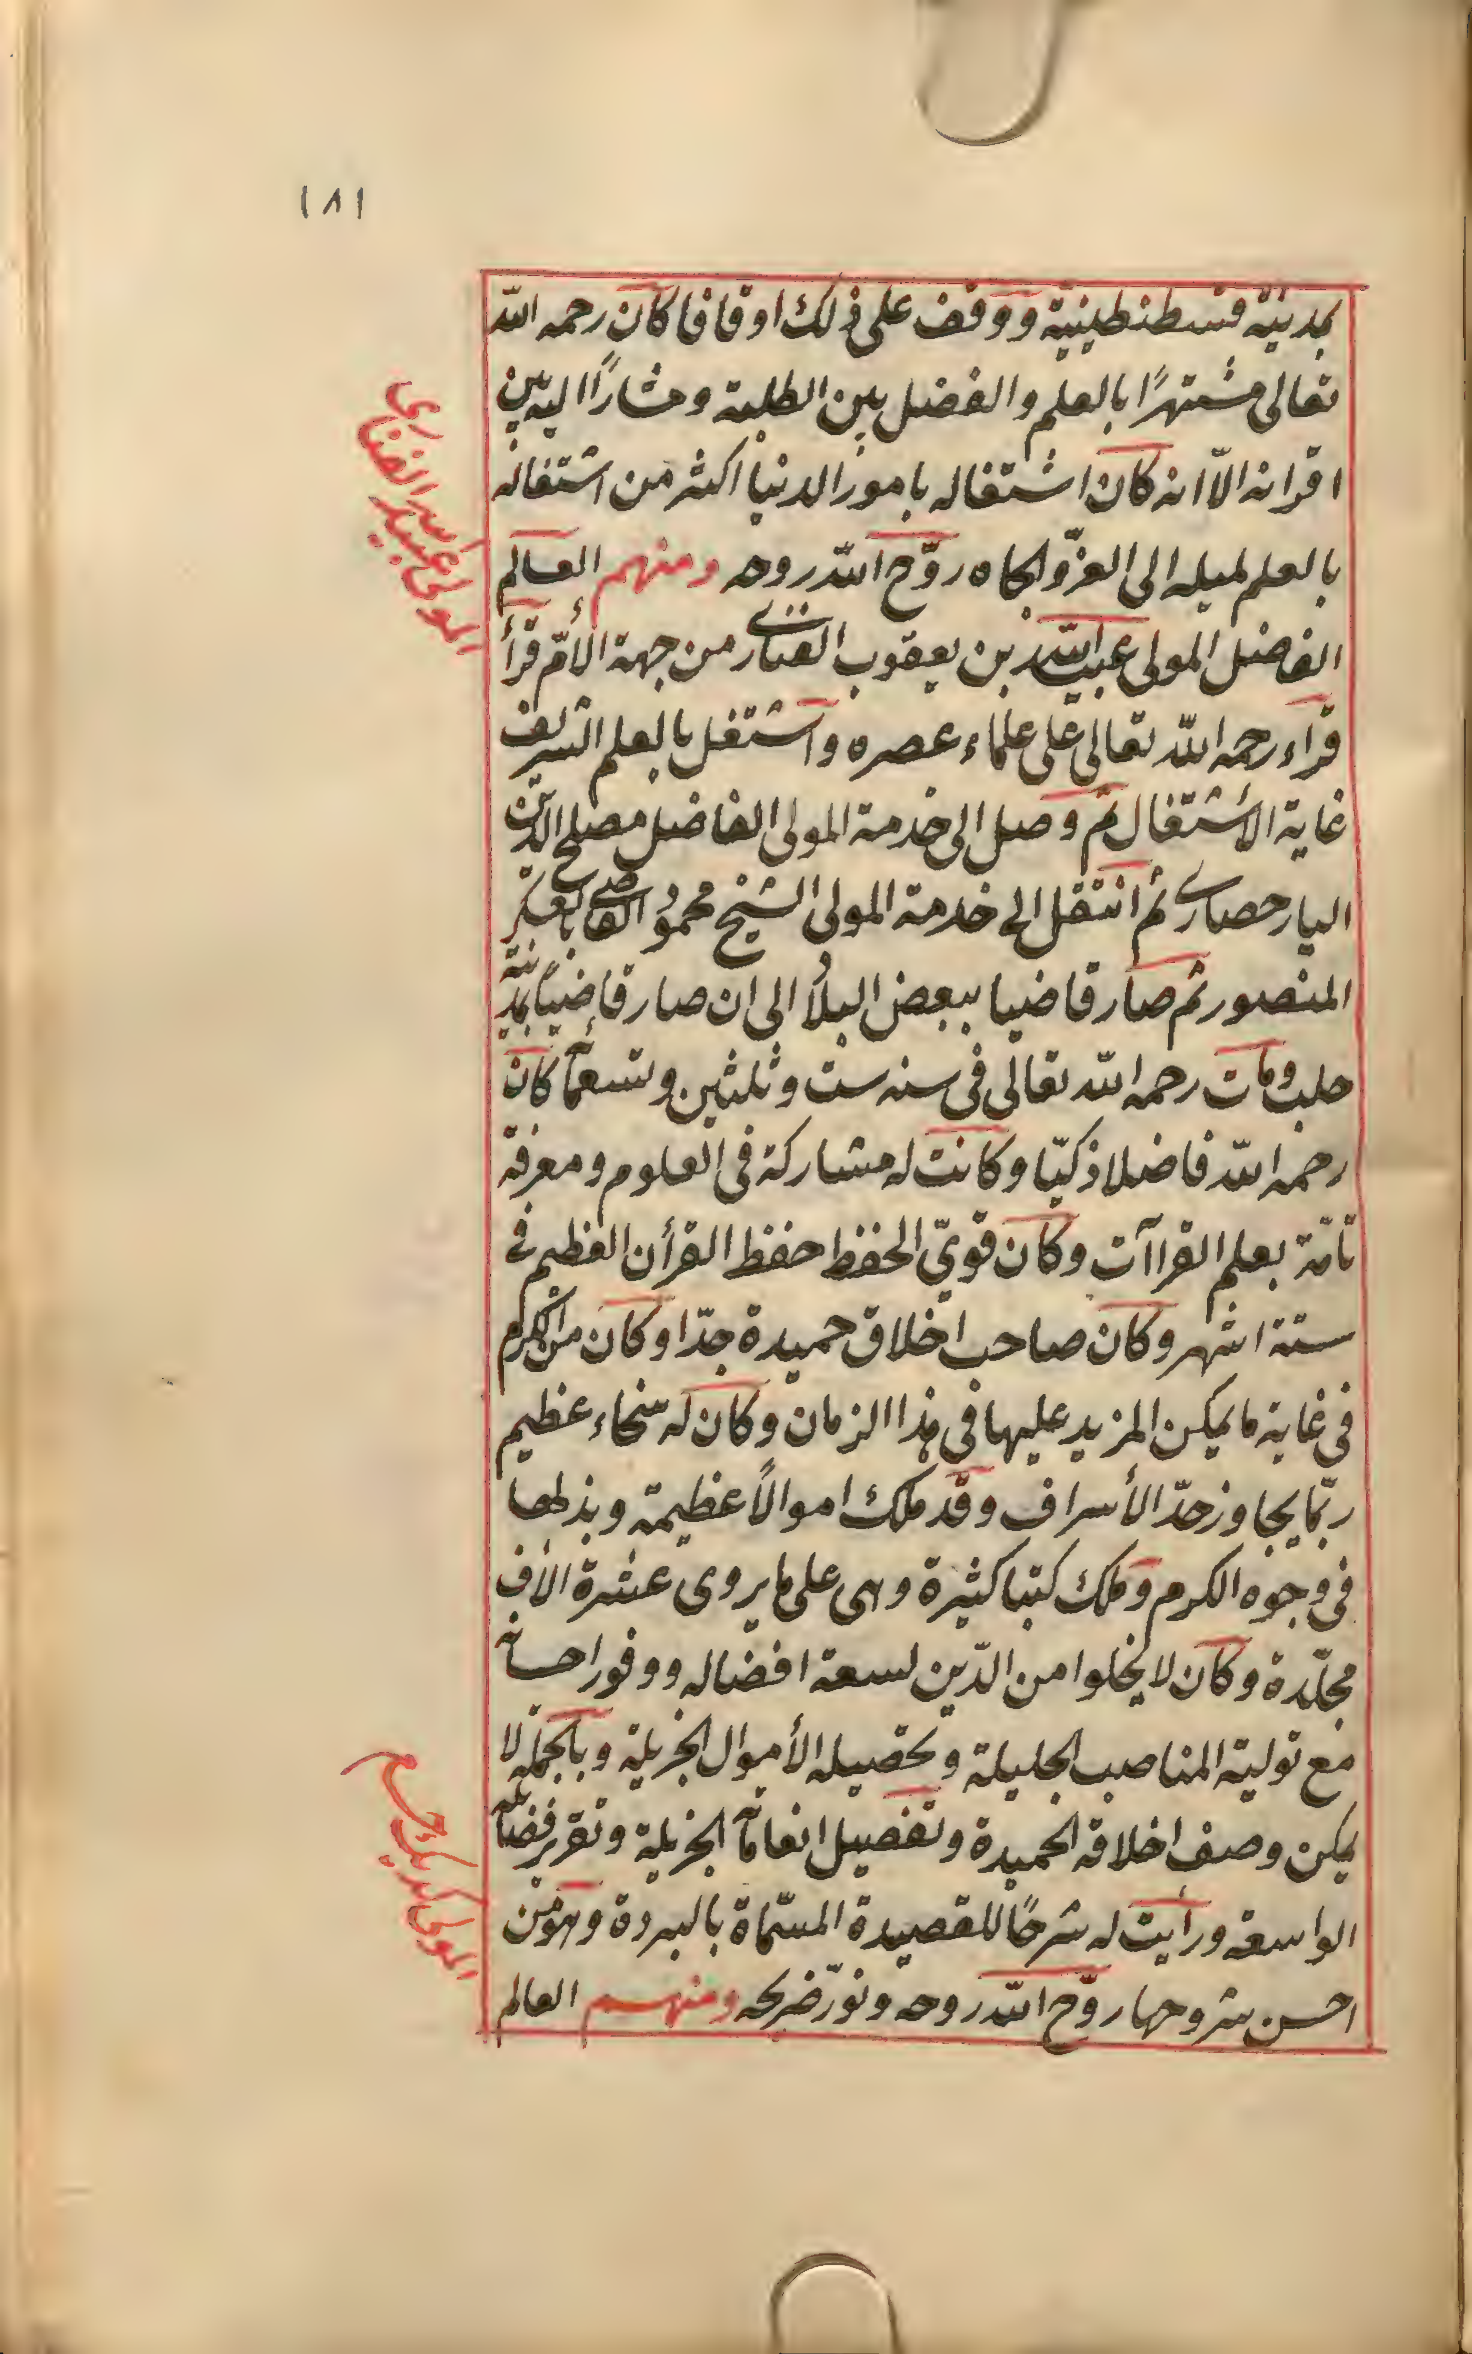 ١٨١
بمدينة قسطنطينية ووقف على ذلك اوقافا كان رحمه الله
تعالى مشتهرًا بالعلم والفضل بين الطلبة ومشارًا اليه بين
اقرانه الاّ انه كان اشتغاله بامور الدنيا اكثر من اشتغاله
بالعلم لميله الى العزّ والجاه روّح الله روحه ومنهم العالم
الفاضل المولى عبيد الله بن يعقوب الفنارى من جهة الأمّ قرأ
قراء رحمه الله تعالى على علماء عصره واشتغل بالعلم الشريف
غاية الأشتغال ثم وصل الى خدمة المولى الفاضل مصلح الدين
اليارحصارى ثم انتقل الى خدمة المولى الشيخ محمود القاضى بالعسكر
المنصور ثم صار قاضيا ببعض البلاد الى ان صار قاضيًا بمدينة
حلب ومات رحمه الله تعالى فى سنه ست وثلثين وتسعمأة كان
رحمه الله فاضلا ذكيّا وكانت له مشاركة فى العلوم ومعرفة
تامّة بعلم القراآت وكان قويّ الحفظ حفظ القرأن العظيم فى
ستة اشهر وكان صاحب اخلاق حميدة جدّا وكان من الكرم
فى غاية ما يمكن المزيد عليها فى هذا الزمان وكان له سخاء عظيم
ربّما يجاوز حدّ الأسراف وقد ملك اموالاً عظيمة وبذلها
فى وجوه الكرم وملك كتبا كثيرة وهى على ما يروى عشرة الاف
مجلّدة وكان لا يخلوا من الدّين لسعة افضاله ووفور احسانه
مع توليته المناصب الجليلة وتحصيله الأموال الجزيلة وبالجملة لا
يمكن وصف اخلاقه الحميدة وتفصيل انعاماته الجزيلة وتقرير فضائله
الواسعة ورأيت له شرحًا للقصيدة المسمّاة بالبردة وهو من
احسن شروحها روّح الله روحه ونوّر ضريحه ومنهم العالم
المولى عبيد الله الفنارى
المولى